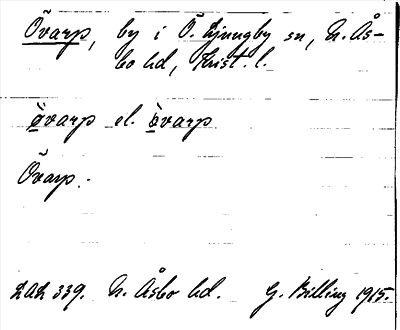 Övarp, by i Ö. Ljungby sn, N. Ås-
bo hd, Krist. l.
övarp el. övarp
Övarp.
LAL 339. N. Åsbo hd. G. Billing 1915.